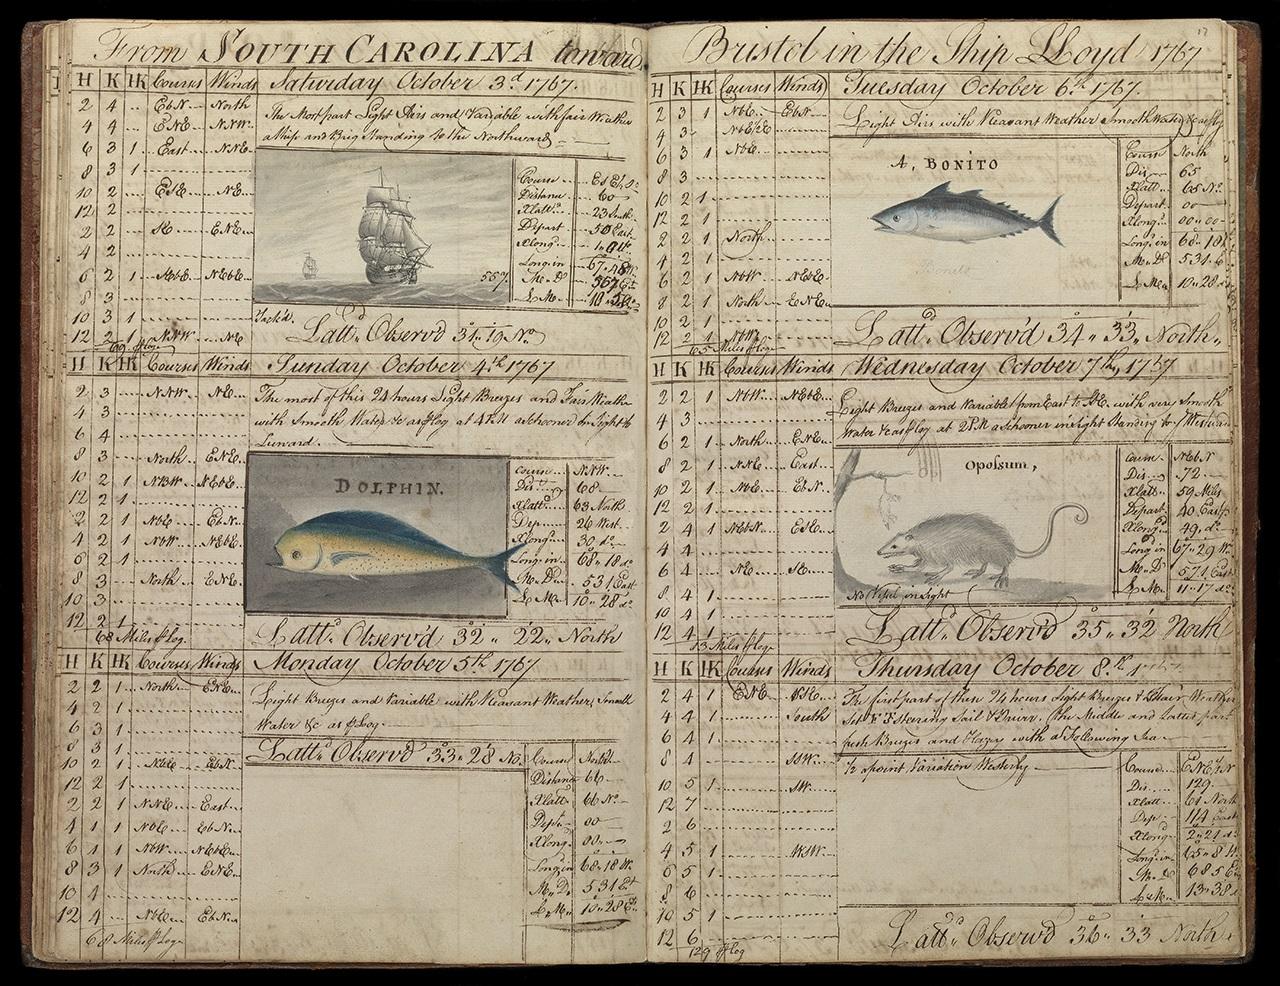 From SOUTH CAROLINA toward
H K HK Courses Winds Saturday October 3d. 1767.
2 4 .. EbN North
4 4 .. ENE NNW
6 3 1 East NNE
8 3 1
10 2 ESE NE
12 2
2 2 SE ENE
4 2
6 2 1 NEbE
8 3
10 3 1
12 2 1 NNW NE
The Most part Light Airs and Variable with fair Weather
a Ship and Brig standing to the Northward
Course
Distance 60
Xlatt. 23 South
Depart 50 East
Xlong.
Long. in
M. D. 557
L. M.
557.
Tack'd.
Latt. Observ'd 31.. 19 No.
H K HK Courses Winds Sunday October 4th 1767
2 3 NNW NE
4 3
6 4
8 3 North ENE
10 2 1 NBW NEbE
12 2 1
2 2 1 NbE EbN
4 2 1 NbW NEbE
6 2 1
8 3 North ENE
10 3
12 2 1
68 Miles p Log
The most of this 24 hours Light Breezes and Fair Weather
with Smooth Water &c as p Log at 4 P.M a Schooner in Sight to
Leward.
DOLPHIN.
Course NNW
Dis. 68
Xlatt. 63 North
Dep. 26 West
Xlong. 30 do.
Long. in 68 .. 18 do.
M. D. 531 East
L. M. 10 .. 28 do.
Latt. Observ'd 32.. 22.. North
H K HK Courses Winds Monday October 5th 1767.
2 2 1 North ENE
4 2 1
6 3 1
8 3 1
10 2 1 NbE EbN
12 2 1
2 2 1 NNE East
4 1 1 NbE EbN
6 1 1 NbW NEbE
8 3 1 North ENE
10 4
12 4 NbE EbN
68 Miles p Log
Light Breezes and Variable with Pleasant Weather, Smooth
Water &c as p Log
Latt. Observ'd 33.. 28 No.
Course North
Distance 66
Xlatt. 66 No.
Dept. 00
Xlong. 00
Long. in 68 .. 18 W.
M. D. 531 Et
L. M. 10 .. 28 Et.
Bristol in the Ship Lloyd 1767
17
H K HK Courses Winds Tuesday October 6th 1767.
2 3 1 NbE EbN
4 3
6 3 1 NbE
8 3
10 2 1
12 2 1
2 2 1 North
4 2 1
6 2 1 NbW NEbE
8 2 1 North ENE
10 2 1
12 2 1 NbW
65 Miles p Log
Light Airs with Pleasant Weather Smooth Water &c as p Log
A, BONITO
Bonito
Course North
Dis. 65
Xlatt. 65 No.
Depart 00
Xlong. 00 .. 00
Long. in 68 .. 18
M. D. 531
L. M. 10 .. 28 do.
Latt. Observ'd 34.. 33.. North..
H K HK Courses Winds Wednesday October 7th, 1767
2 2 1 NbW NEbE
4 3
6 2 1 North ENE
8 2 1 NNE East
10 2 1 NbE EbN
12 2 1
2 4 1 NEbN ESE
4 4
6 4 NE SE
8 4 1
10 4 1
12 4 1
Light Breezes and Variable from East to SE. with very Smooth
Water &c as p Log at 2 P.M a Schooner in Sight Standing to ye Westward
Opossum,
No Vessel in Sight
Course NEbN
Dis. 72
Xlatt. 59 Miles
Depart 40 East
Xlong. 49 do.
Long. in 67 .. 29 W.
M. D. 571 East
L. M. 11 .. 17 do.
Latt. Observ'd 35.. 32 North
H K HK Courses Winds Thursday October 8th 1767
2 4 1 ENE SE
4 4 1 South
6 4 1
8 4 SSW
10 5 1 SW
12 7
2 6
4 5 1 WSW
6 5 1
8 6
10 5 1
12 6
129 p Log
The first part of these 24 hours Light Breezes & Fair Weather
Set F T Steering Sail & Driver. the Middle and Latter part
fresh Breezes and Hazey with a Following Sea
½ a point Variation Westerly
Course ENE½N
Dis. 129
Xlatt. 61 North
Dep. 114 East
Xlong. 2 .. 21 do.
Long. in 65 .. 8 W.
M. D. 685
L. M. 13 .. 38
Latt. Observ'd 36.. 33 North